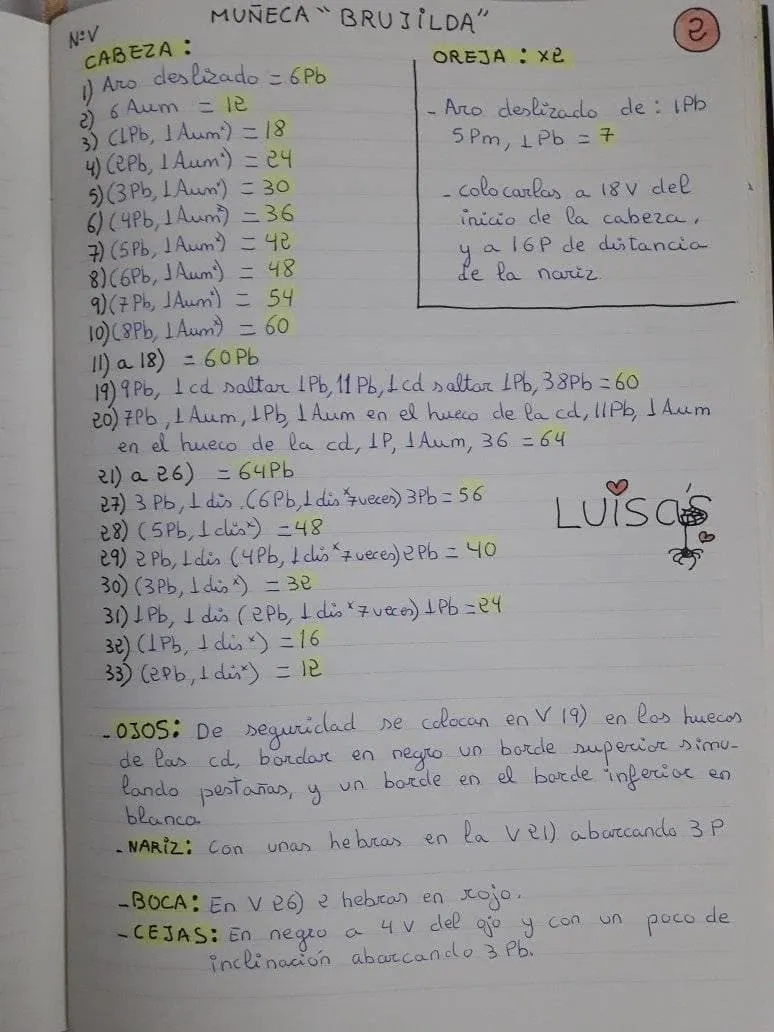 MUÑECA "BRUJILDA"
2
Nº:V
CABEZA:
1) Aro deslizado = 6Pb
2) 6 Aum = 12
3) (1Pb, 1Aumˣ) = 18
4) (2Pb, 1Aumˣ) = 24
5) (3Pb, 1Aumˣ) = 30
6) (4Pb, 1Aumˣ) = 36
7) (5Pb, 1Aumˣ) = 42
8) (6Pb, 1Aumˣ) = 48
9) (7Pb, 1Aumˣ) = 54
10) (8Pb, 1Aumˣ) = 60
11) a 18) = 60Pb
19) 9Pb, 1cd saltar 1Pb, 11Pb, 1cd saltar 1Pb, 38Pb = 60
20) 7Pb, 1Aum, 1Pb, 1Aum en el hueco de la cd, 11Pb, 1Aum
en el hueco de la cd, 1P, 1Aum, 36 = 64
21) a 26) = 64Pb
27) 3Pb, 1dis. (6Pb, 1disˣ 7veces) 3Pb = 56
28) (5Pb, 1disˣ) = 48
29) 2Pb, 1dis (4Pb, 1disˣ 7veces) 2Pb = 40
30) (3Pb, 1disˣ) = 32
31) 1Pb, 1dis (2Pb, 1disˣ 7veces) 1Pb = 24
32) (1Pb, 1disˣ) = 16
33) (2Pb, 1disˣ) = 12
OREJA: x2
- Aro deslizado de: 1Pb
5Pm, 1Pb = 7
- colocarlas a 18V del
inicio de la cabeza,
y a 16P de distancia
de la nariz
LUISA'S
- OJOS: De seguridad se colocan en V 19) en los huecos
de las cd, bordar en negro un borde superior simu-
lando pestañas, y un borde en el borde inferior en
blanco.
- NARIZ: Con unas hebras en la V 21) abarcando 3P
- BOCA: En V 26) 2 hebras en rojo.
- CEJAS: En negro a 4V del ojo y con un poco de
inclinación abarcando 3Pb.